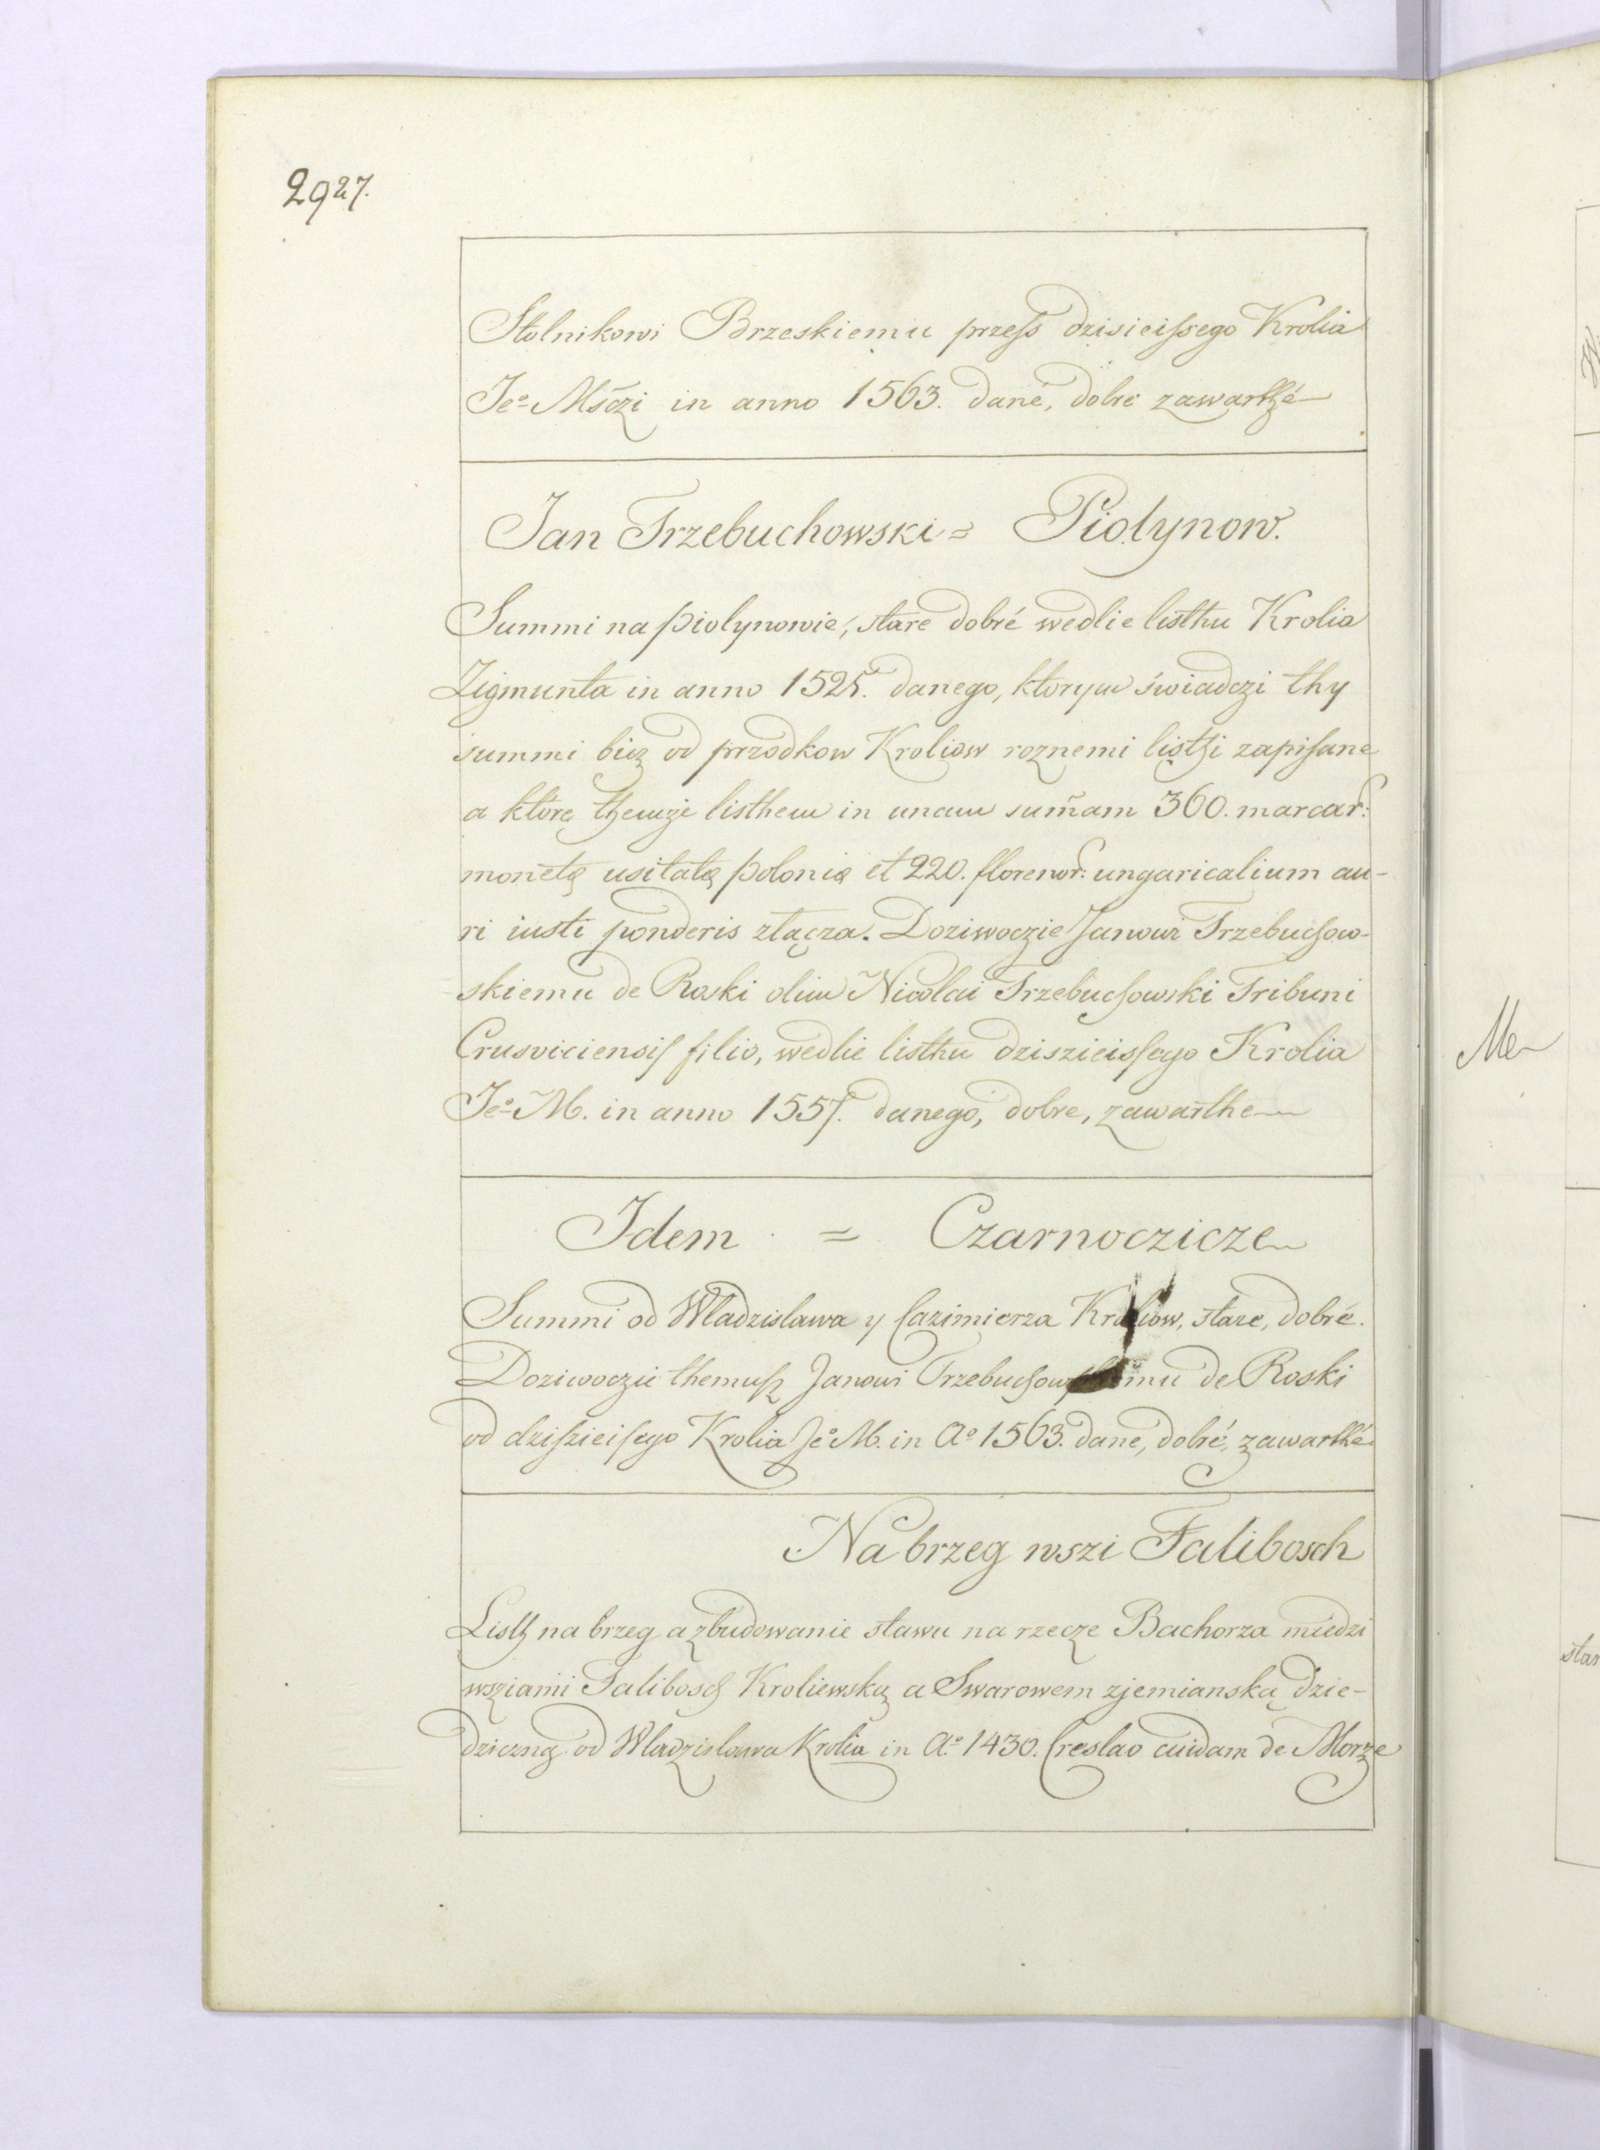 2927.
Stolnikowi Brzeskiemu przeſs dzisieiſsego Krolia
Jeº Mśczi in anno 1563. dané, dobre zawarthé
Jan Trzebuchowski = Piolynow.
Summi na piolynowié, stáre dobré wedlie listhu Krolia
Zigmunta in anno 1525. danego, ktorym świadczi thy
summi bicz od przodkow Kroliow roznemi listhi zapiſane
a które themże listhem in unam sum̃am 360. marcar:
monetę usitatę polonię et 220. florenor: ungaricalium au-
ri iusti ponderis złącza. Doziwoczie Janowi Trzebuchow-
skiemu de Roski olim Nicolai Trzebuchowski Tribuni
Crusviciensiſ filio, wedlie listhu dziszieisſego Krolia
Jeº M. in anno 1557. danego, dobre, zawarthe
Idem = Czarnoczicze
Summi od Wladzislawa y Cazimierza Kroliow, stare, dobré.
Doziwoczie themuſz Janowi Trzebuchowskiemu de Roski
od dziſzieiſego Krolia Jeº M. in Aº 1563. dane, dobré, zawarthé
Na brzeg wszi Falibosch
Listh na brzeg a zbudowanie stawu na rzecze Bachorza miedzi
wsziami Falibosch Kroliewską a Swarowem zjemianską dzie-
dziczną od Wladzislawa Krolia in Aº 1430. Creslao cuidam de Morze
Me
star